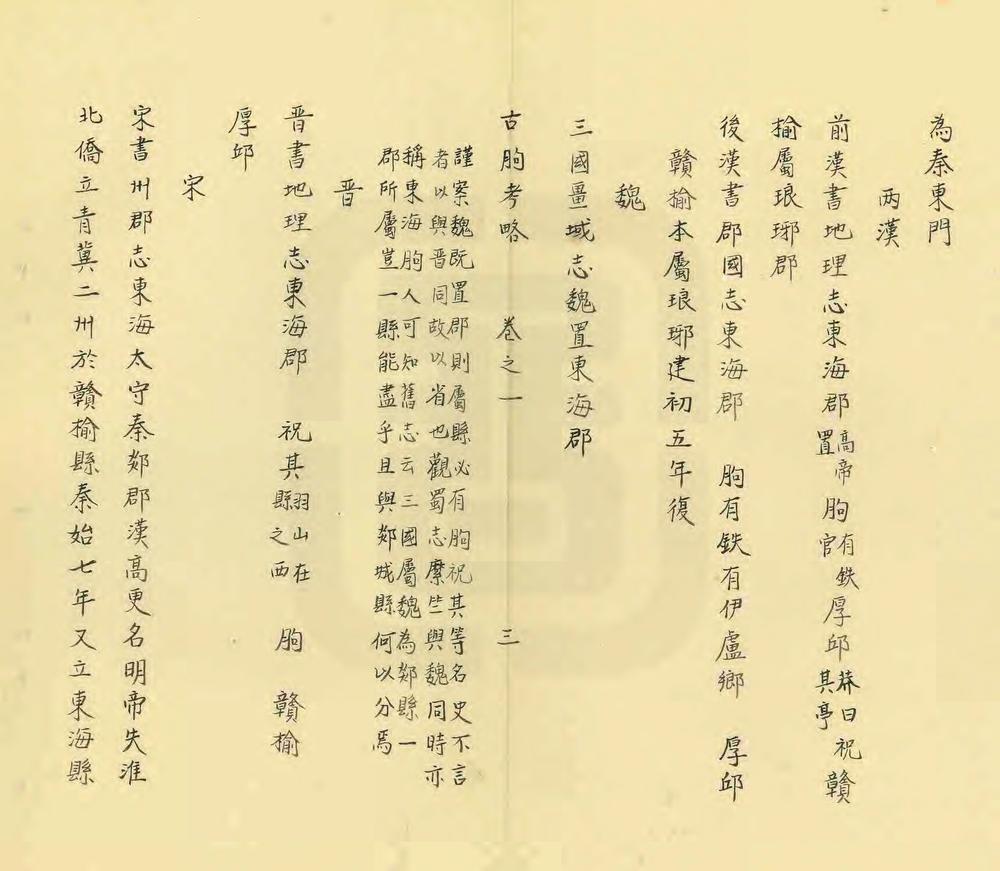 為秦東門
兩漢
前漢書地理志東海郡高帝置朐有鉄官厚邱莽曰祝其亭贛
榆屬琅琊郡
後漢書郡國志東海郡　朐有鉄有伊盧鄉　厚邱
贛榆本屬琅琊建初五年復
魏
三國畺域志魏置東海郡
古朐考略　卷之一　三
謹案魏既置郡則屬縣必有朐祝其等名史不言
者以與晋同故以省也觀蜀志縻竺與魏同時亦
稱東海朐人可知舊志云三國屬魏為郯縣一
郡所屬豈一縣能盡乎且與郯城縣何以分焉
晋
晋書地理志東海郡　祝其羽山在縣之西　朐　贛榆
厚邱
宋
宋書州郡志東海太守秦郯郡漢高更名明帝失淮
北僑立青冀二州於贛榆縣秦始七年又立東海縣